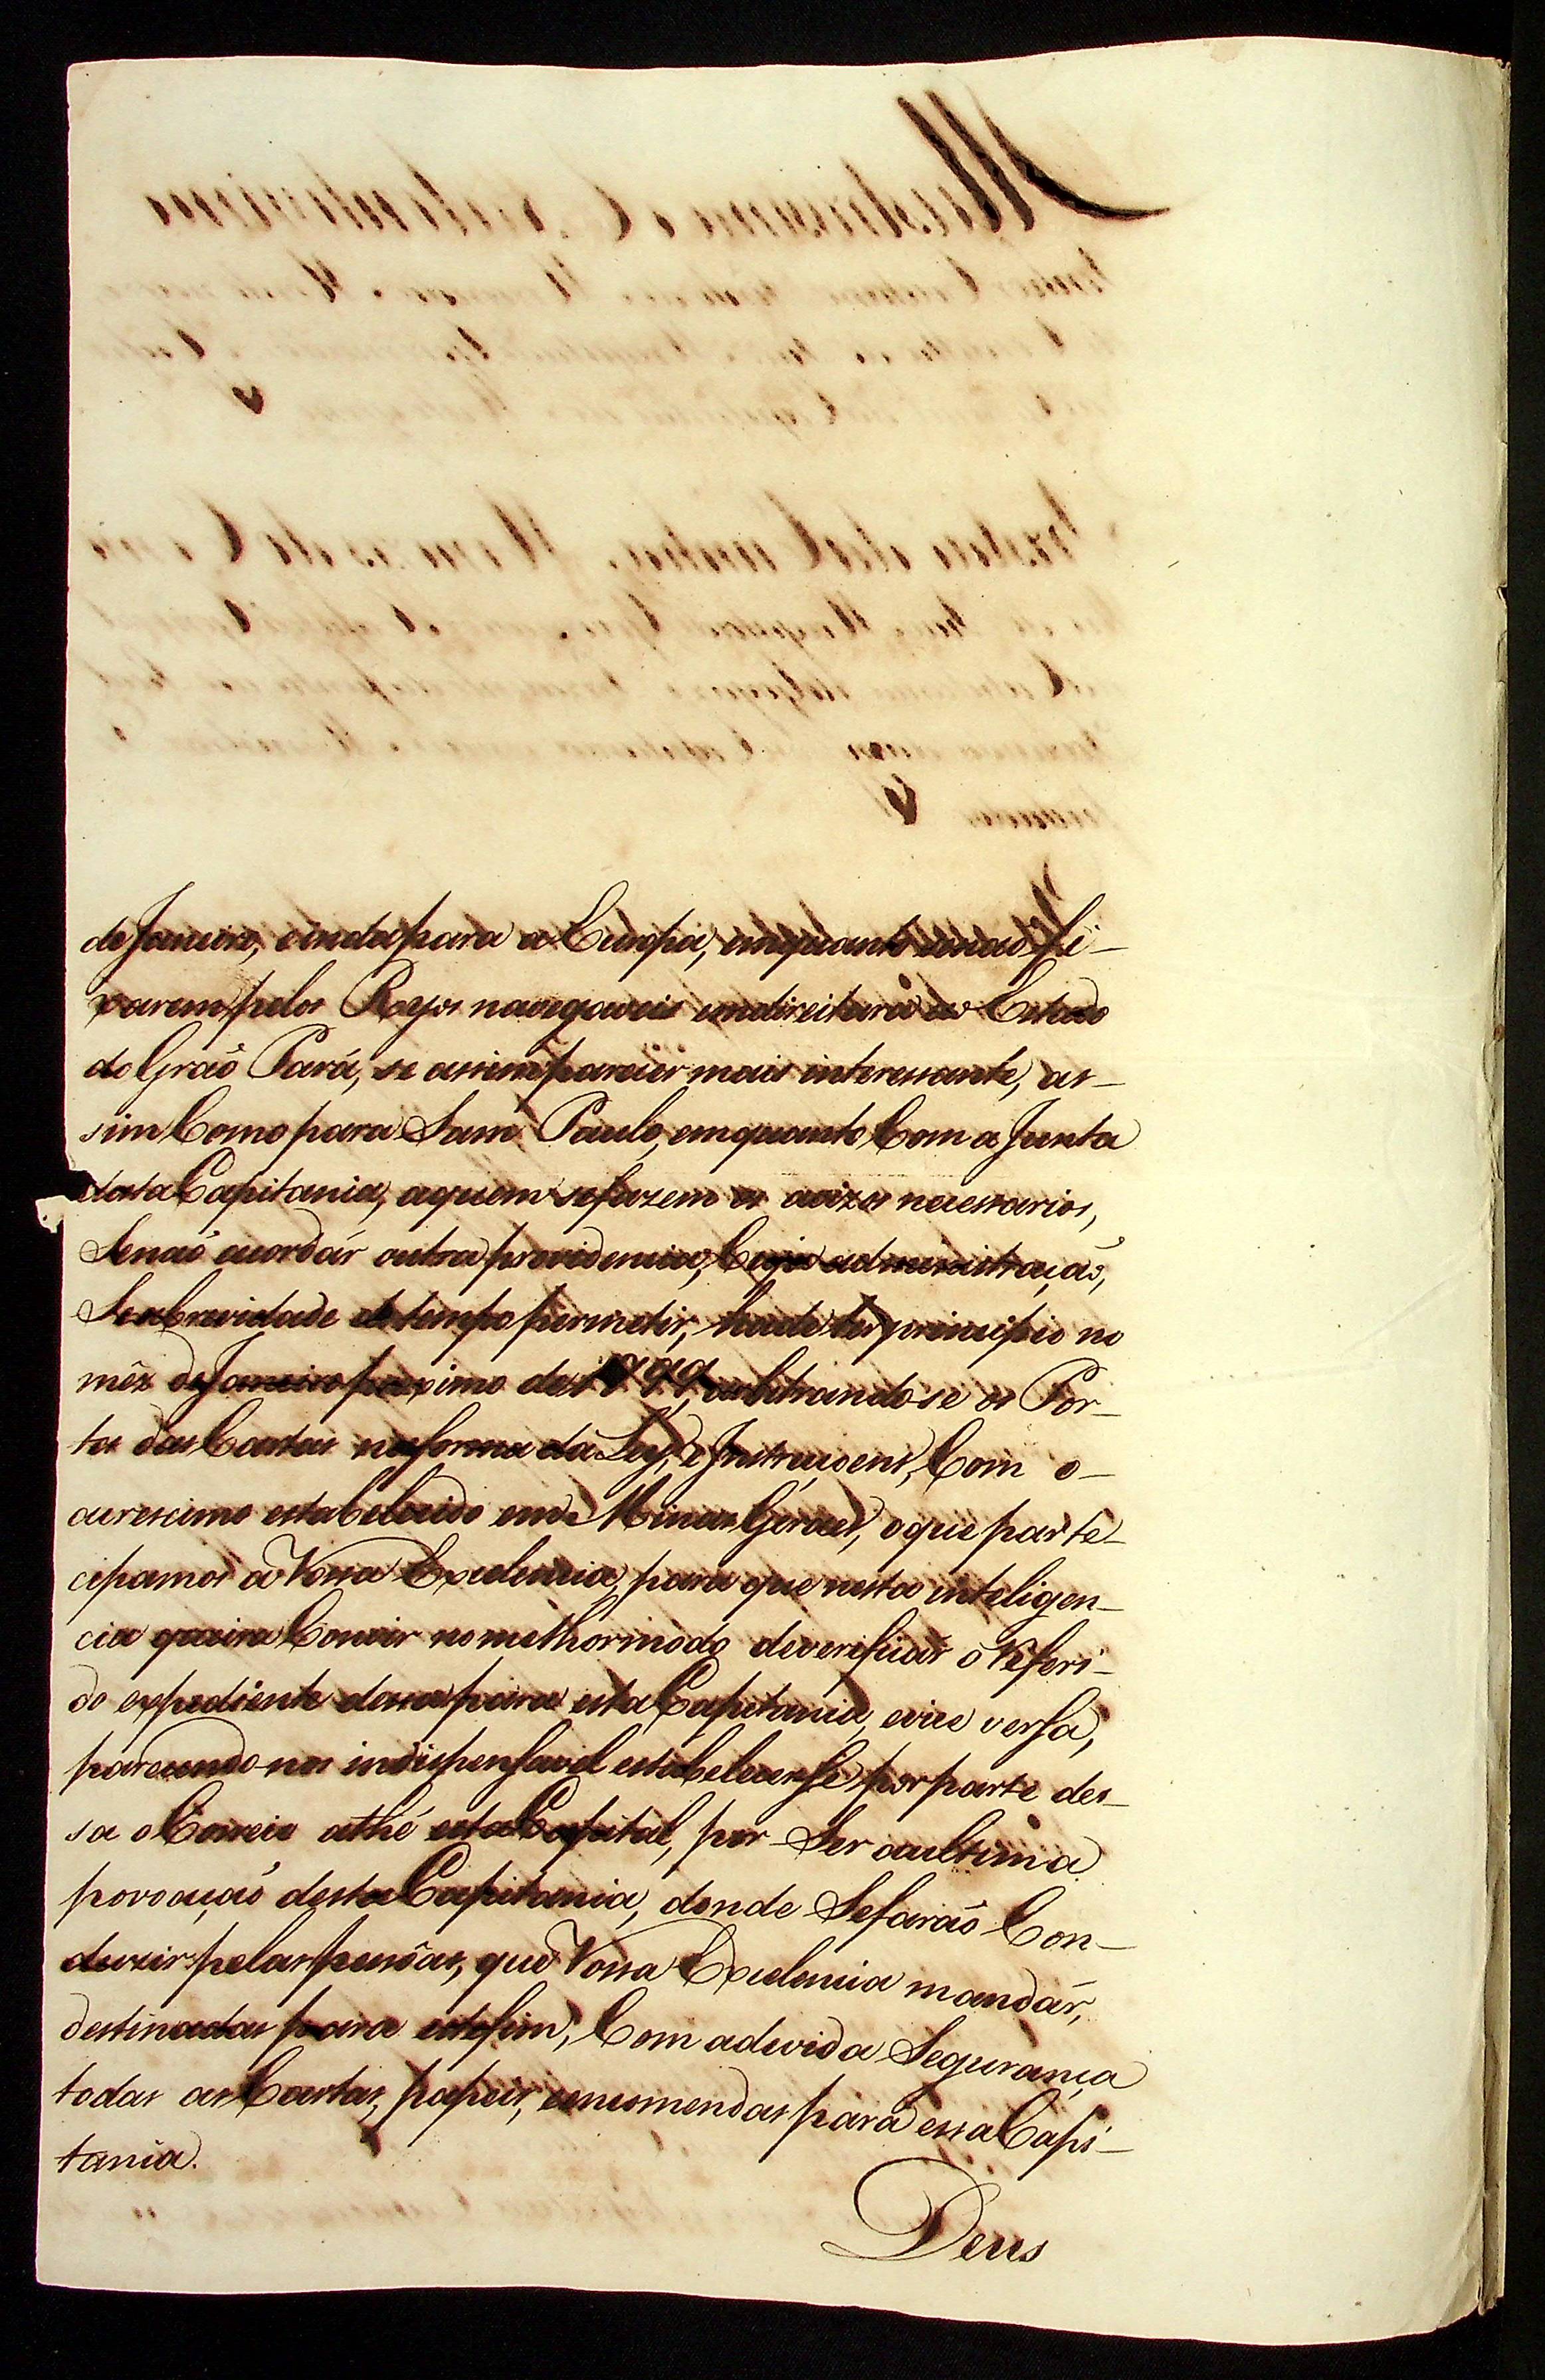 de Janeiro, e inda para a Europa, emquanto senaõ fi-
xarem pelos Rayos navegaveis endireitura ao Estado
do Graõ Pará, se assim parecer mais interessante, as-
sim Como para Sam Paulo, emquanto Com a Junta
desta Capitania, aquem sefazem os avizos necessarios,
Senaõ acordár outra providencia, Cuja administraçaõ,
Se abrevidade do tempo permetir, hade ter principio no
mêz de Janeiro proximo de 1799, arbitrando-se os Por-
tes das Cartas naforma da Ley, e Instruçoens, Com o-
acrescimo estabelecido em Minas Geraes, oque parte-
cipamos a Vossa Excelencia, para que nesta inteligen-
cia queira Convir no melhor modo de verificár o Referi-
do expediente dessa para esta Capitania, evice versa,
parecendo-nos indispensavel estabelecerse por parte des-
sa o Correio athé esta Capital, por Ser aultima
povoaçaõ desta Capitania, donde Sefaraõ Con-
duzir pelas pessôas, que Vossa Excelencia mandár,
destinadas para estefim, Com adevida Segurança
todas as Cartas, papeis, eencomendas para essa Capi-
tania.
Deus